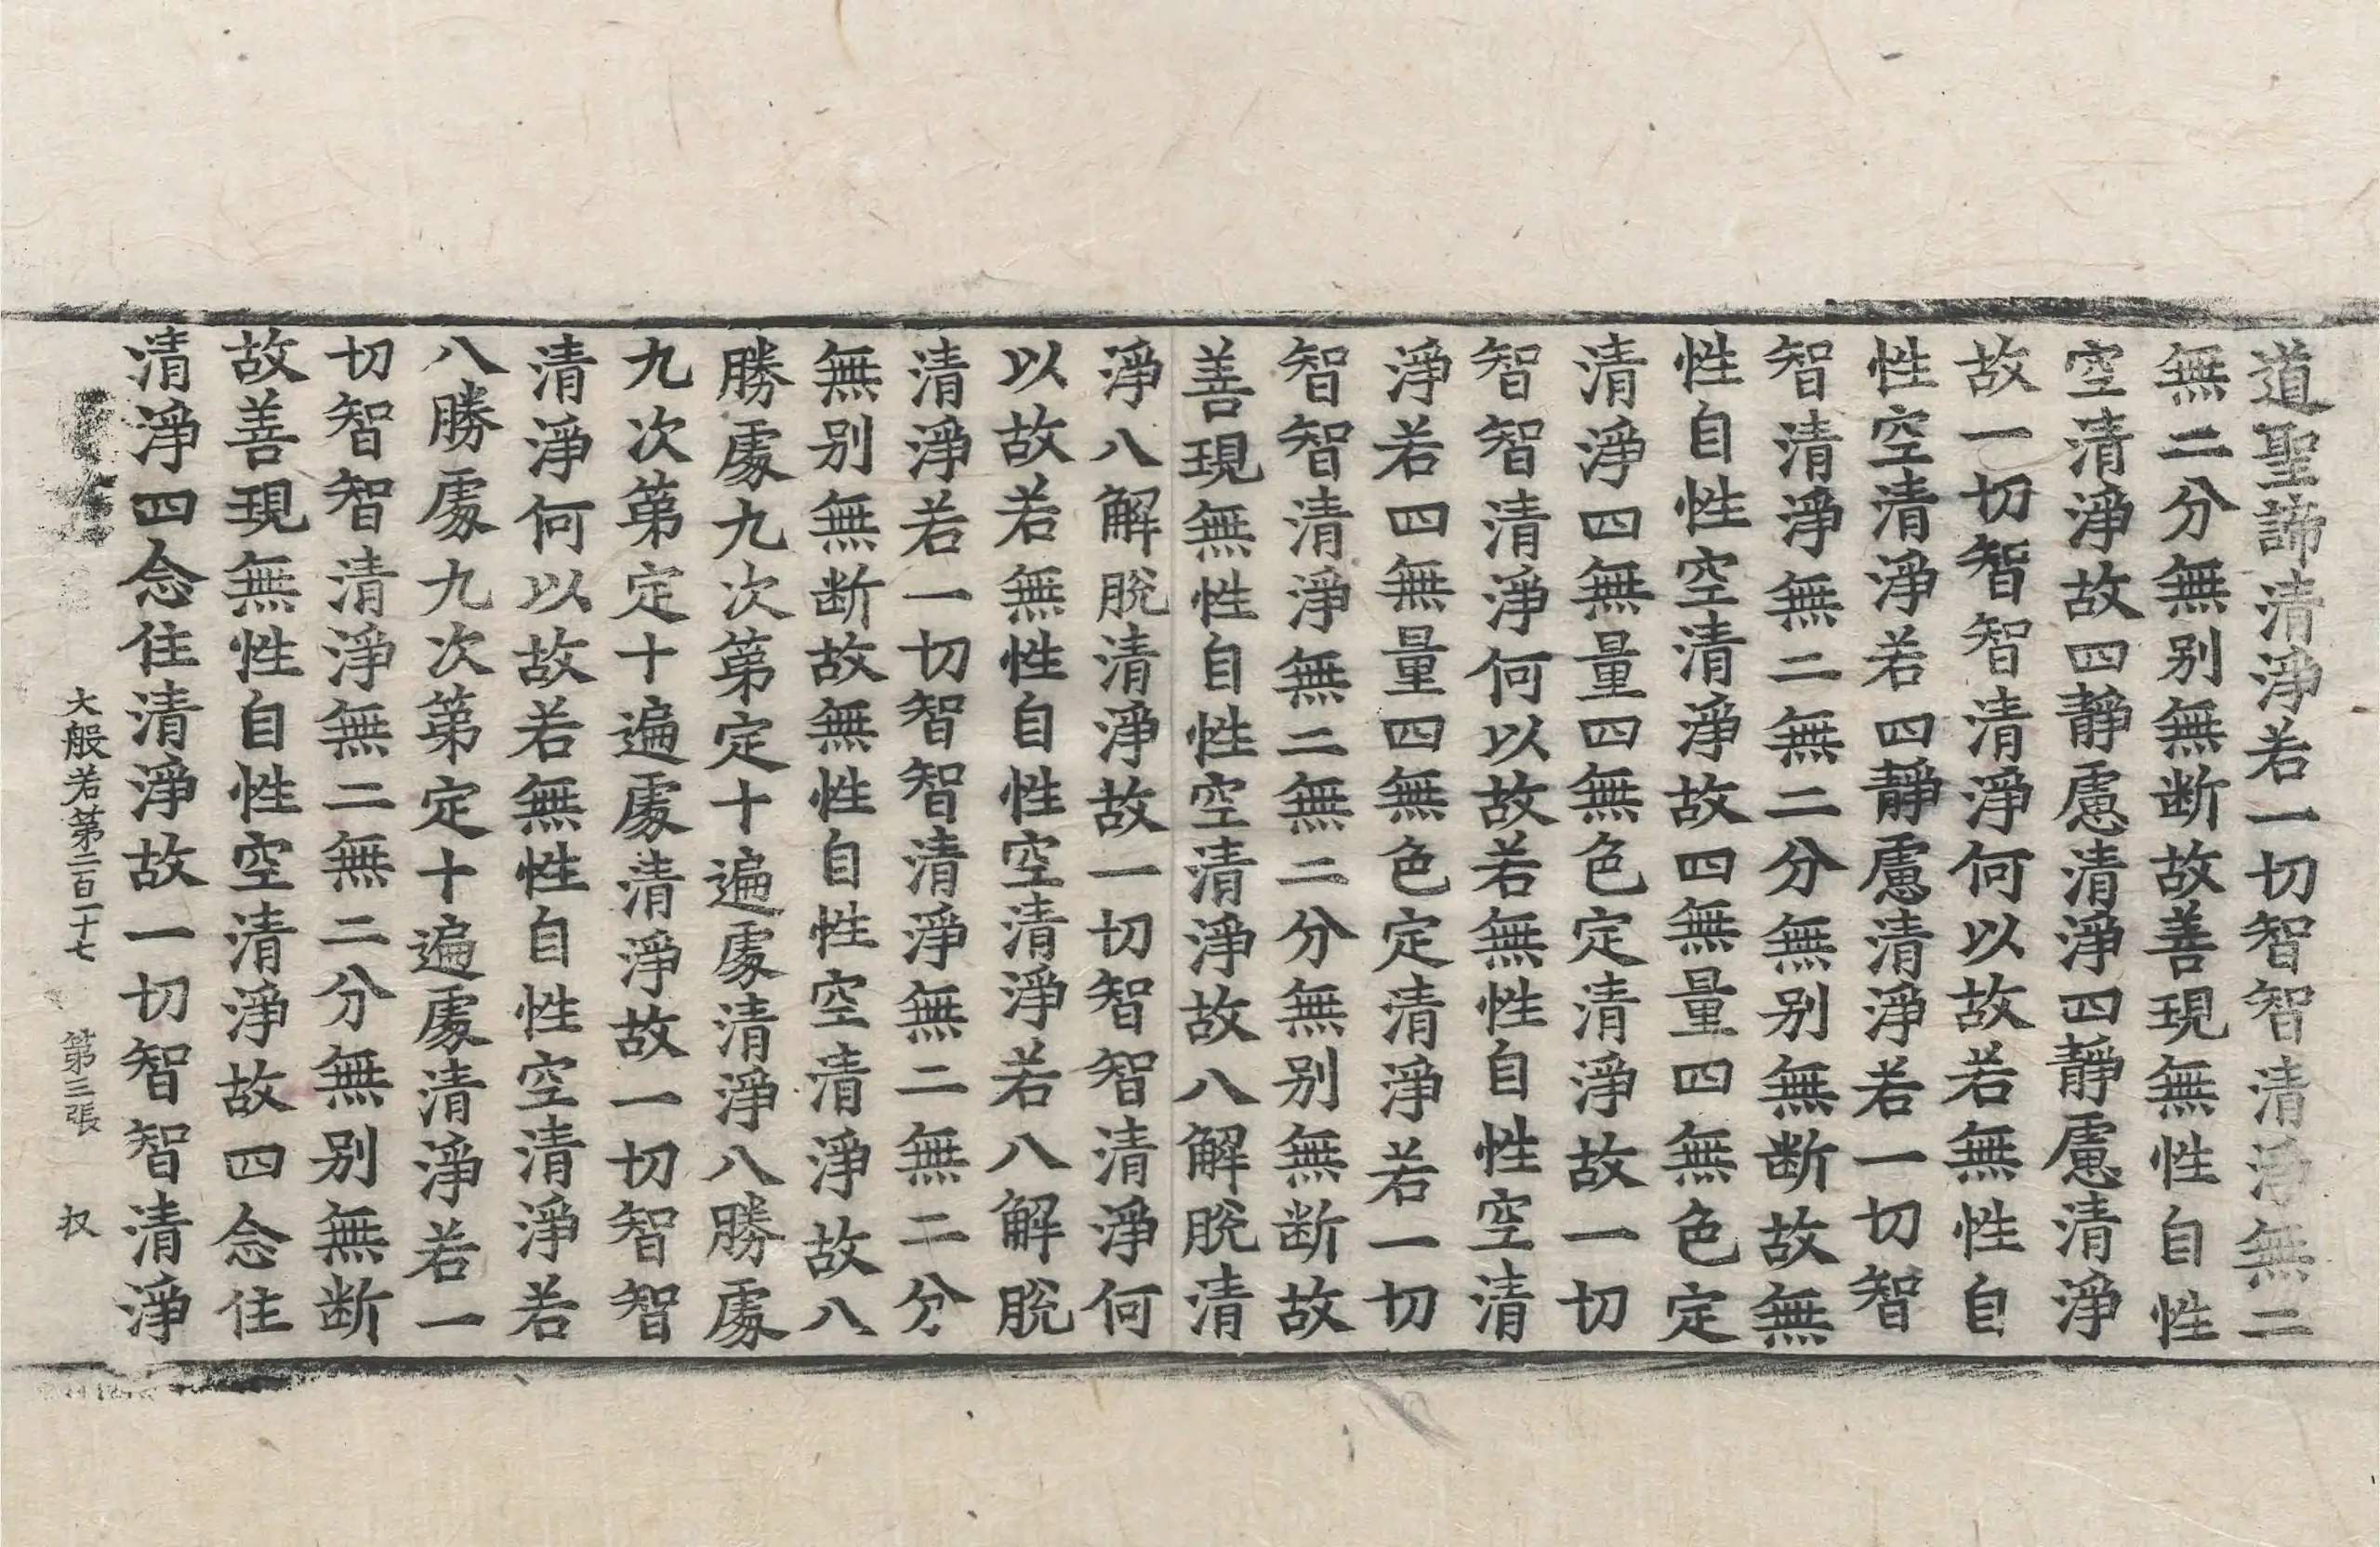 道聖諦清淨若一切智智清淨無二
無二分無别無断故善現無性自性
空清淨故四靜慮清淨四靜慮清淨
故一切智智清淨何以故若無性自
性空清淨若四靜慮清淨若一切智
智清淨無二無二分無别無断故無
性自性空清淨故四無量四無色定
清淨四無量四無色定清淨故一切
智智清淨何以故若無性自性空清
淨若四無量四無色定清淨若一切
智智清淨無二無二分無别無断故
善現無性自性空清淨故八解脫清
淨八解脫清淨故一切智智清淨何
以故若無性自性空清淨若八解脫
清淨若一切智智清淨無二無二分
無别無断故無性自性空清淨故八
勝處九次第定十遍處清淨八勝處
九次第定十遍處清淨故一切智智
清淨何以故若無性自性空清淨若
八勝處九次第定十遍處清淨若一
切智智清淨無二無二分無别無断
故善現無性自性空清淨故四念住
清淨四念住清淨故一切智智清淨
大般若第二百一十七 第三張 収